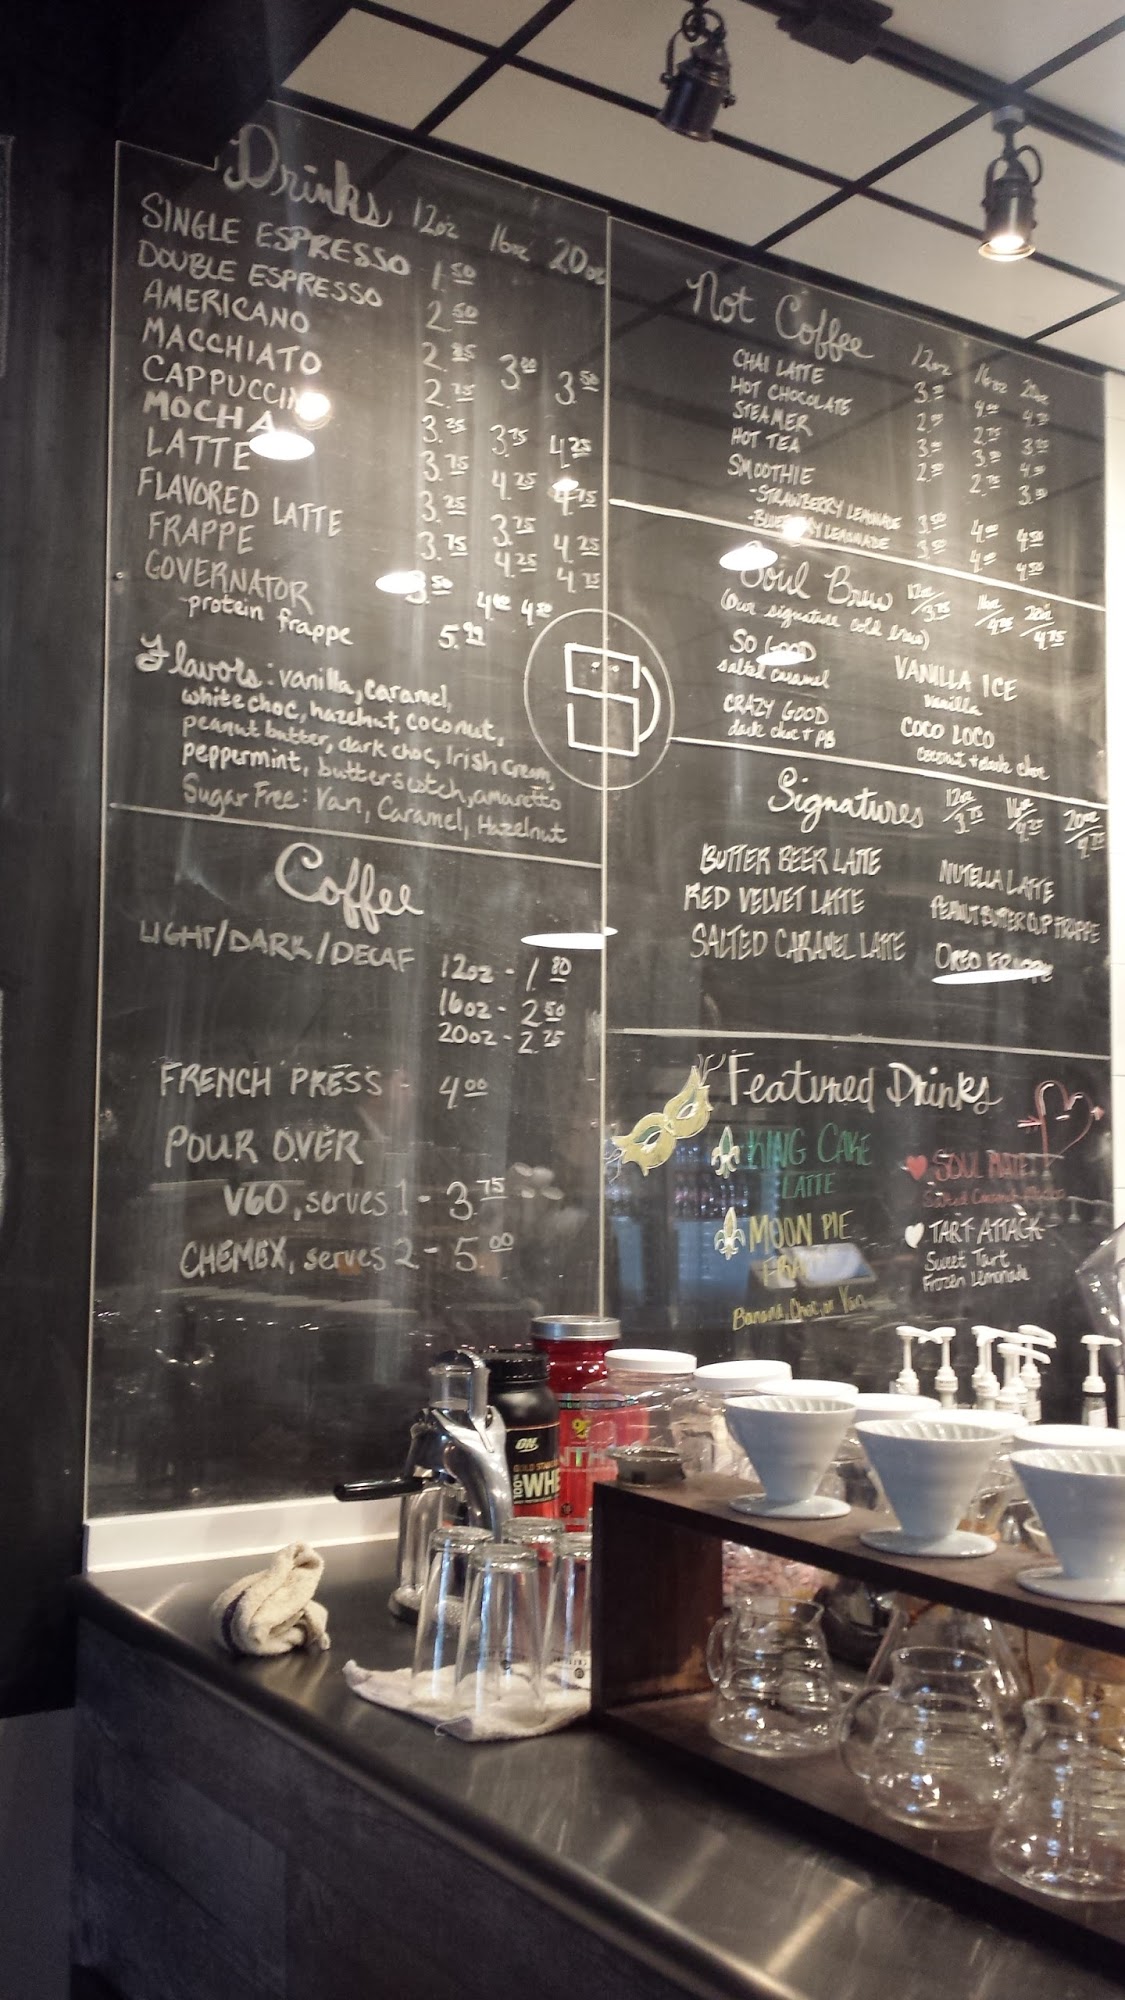 Drinks 12oz 16oz 20oz
SINGLE ESPRESSO 1.50
DOUBLE ESPRESSO 2.50
AMERICANO 2.25 3.00 3.50
MACCHIATO 2.75
CAPPUCCINO 3.25 3.75 4.25
MOCHA 3.75 4.25 4.75
LATTE 3.25 3.75 4.25
FLAVORED LATTE 3.75 4.25 4.75
FRAPPE 3.50
GOVERNATOR 5.99
-protein frappe
Flavors: vanilla, caramel,
white choc, hazelnut, coconut,
peanut butter, dark choc, Irish Cream,
peppermint, butterscotch, amaretto
Sugar Free: Van, Caramel, Hazelnut
Coffee
LIGHT/DARK/DECAF
12oz - 1.80
16oz - 2.50
20oz - 2.75
FRENCH PRESS - 4.00
POUR OVER
V60, serves 1 - 3.75
CHEMEX, serves 2 - 5.00
Not Coffee 12oz 16oz 20oz
CHAI LATTE
HOT CHOCOLATE
STEAMER
HOT TEA
SMOOTHIE
-STRAWBERRY LEMONADE 3.50 4.00 4.50
-BLUEBERRY LEMONADE 3.50 4.00 4.50
Soul Brew 12oz/3.75 16oz/4.25 20oz/4.75
(our signature cold brew)
SO GOOD
salted caramel
CRAZY GOOD
dark choc + PB
VANILLA ICE
vanilla
COCO LOCO
coconut + dark choc
Signatures 12oz/3.75 16oz/4.25 20oz/4.75
BUTTER BEER LATTE
RED VELVET LATTE
SALTED CARAMEL LATTE
NUTELLA LATTE
PEANUT BUTTER CUP FRAPPE
OREO FRAPPE
Featured Drinks
KING CAKE
LATTE
MOON PIE
Banana, Choc, or Van
SOUL MATE
Salted Caramel Mocha
TART ATTACK
Sweet Tart
Frozen Lemonade
ON
GOLD STANDARD
100% WHE